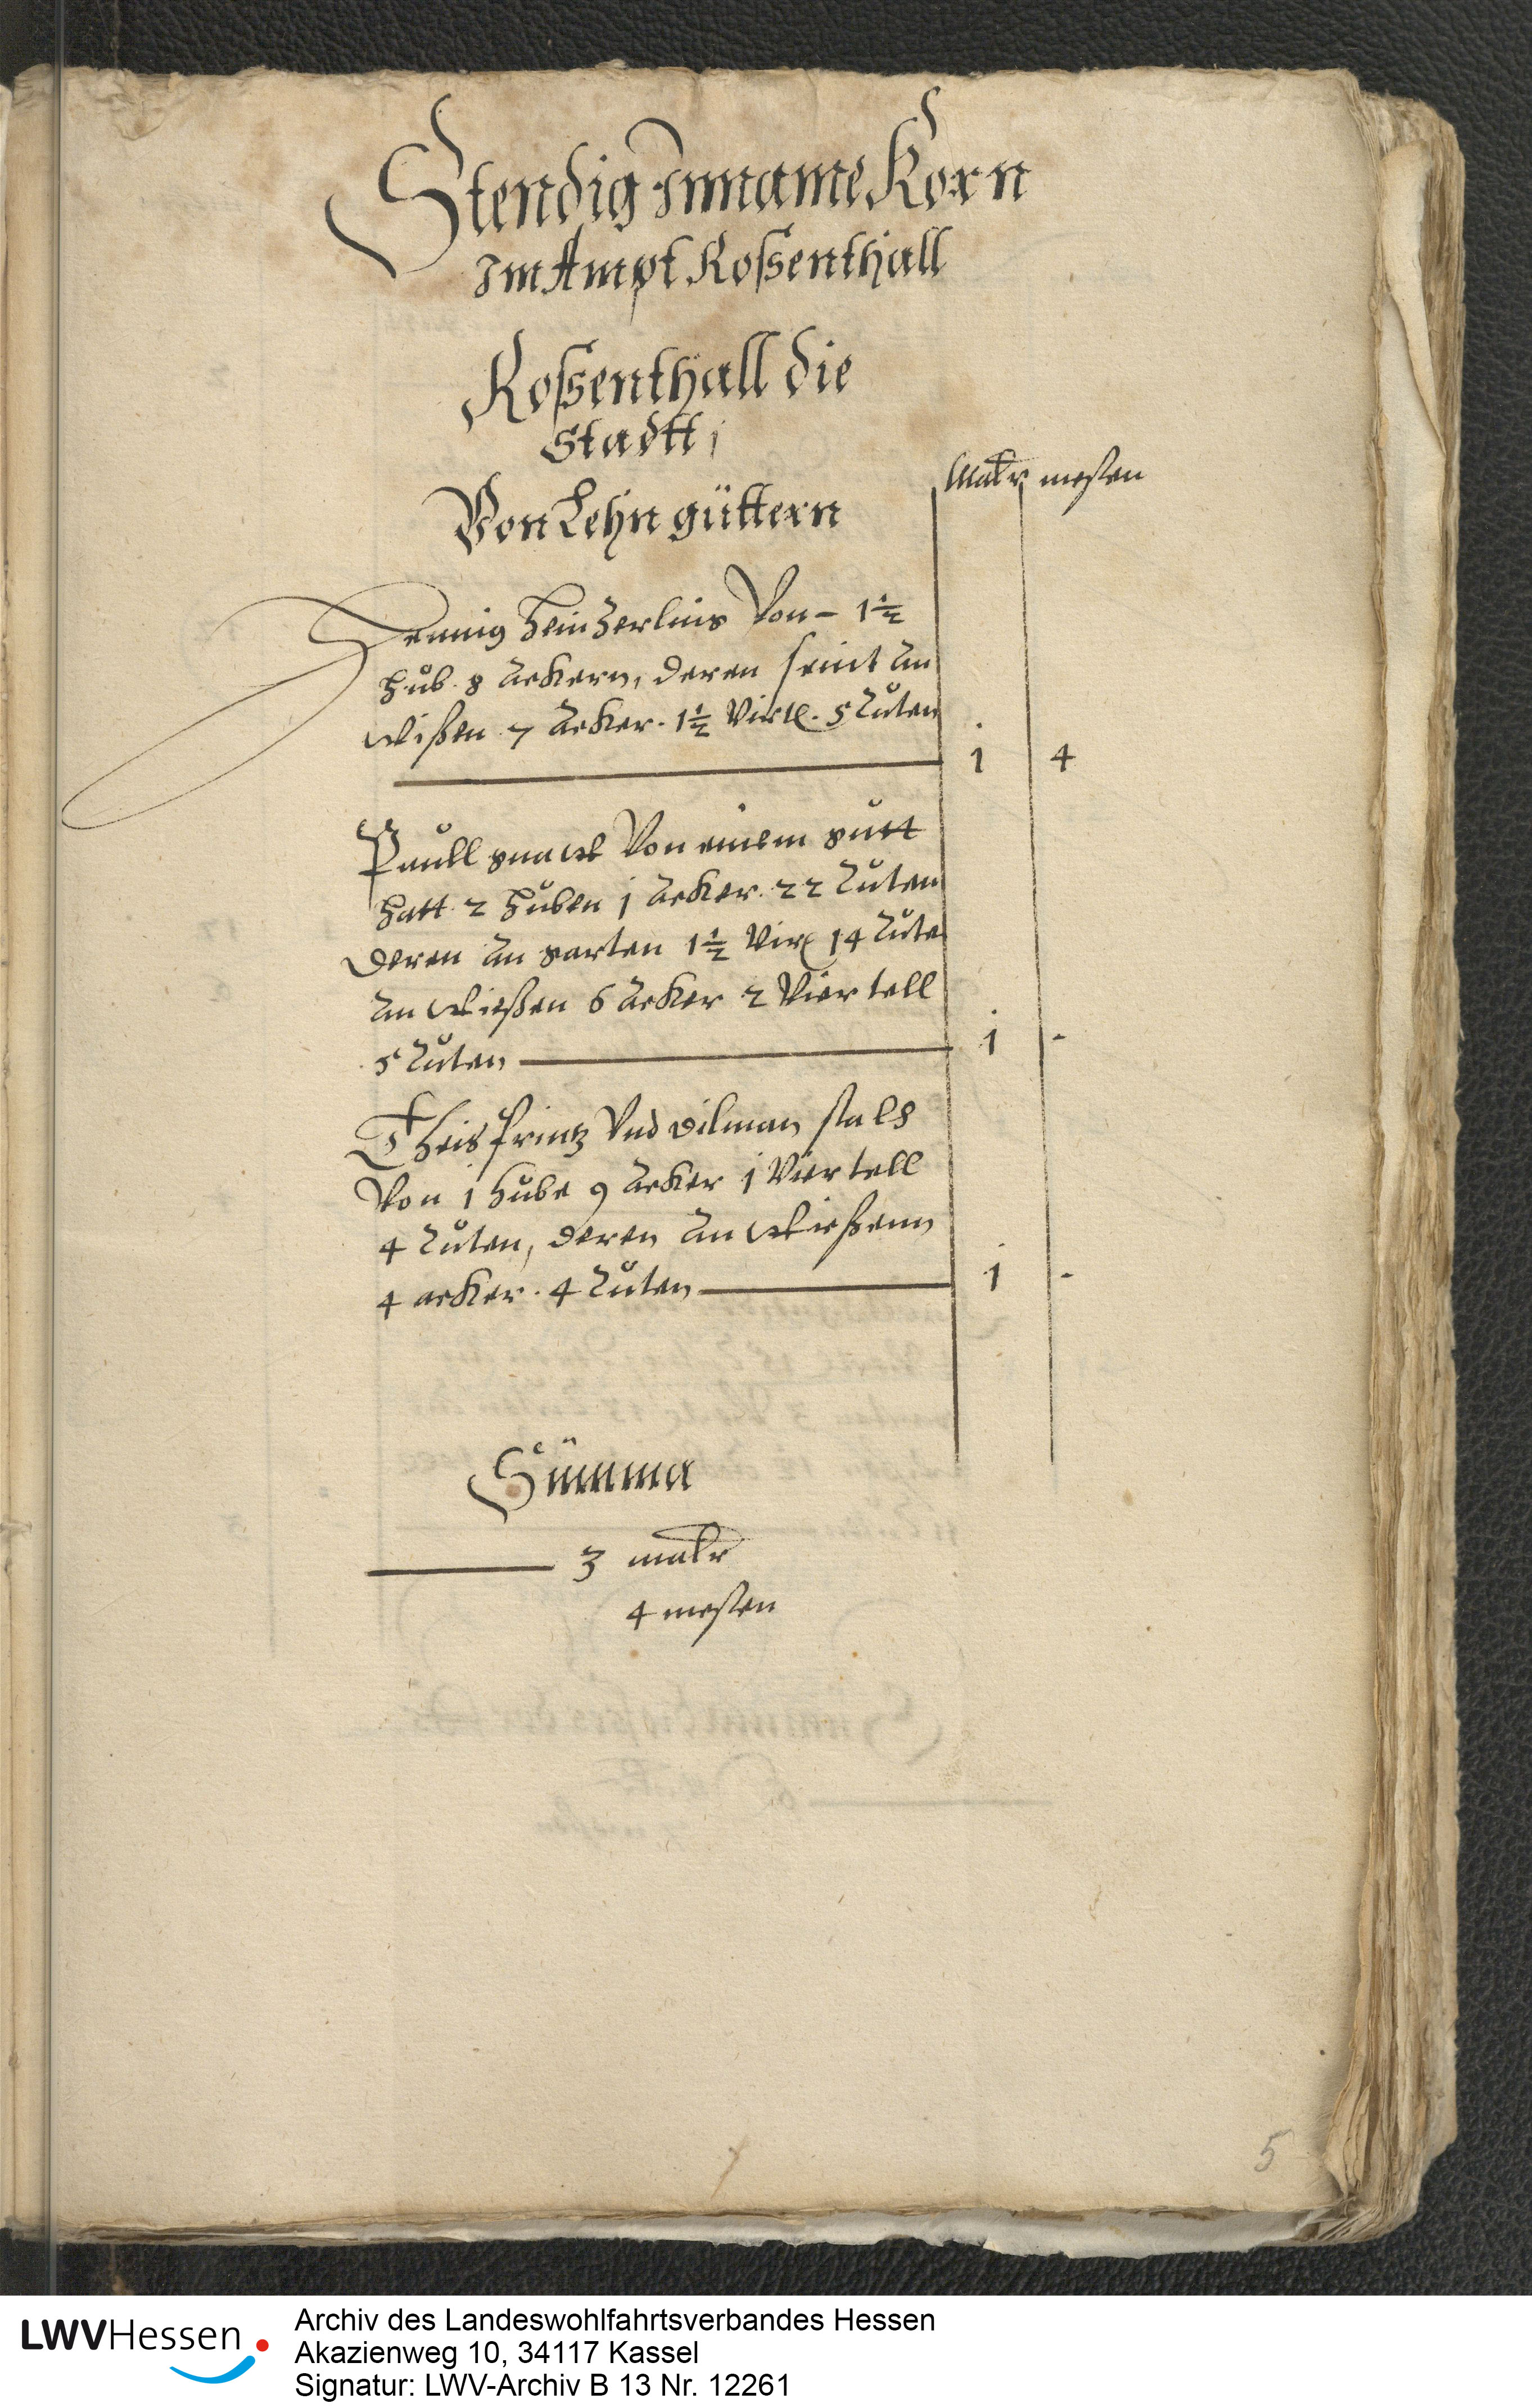 Stendig Innname Korn
Im Ampt Rossenthall
Rossenthall die
Stadtt,
Von Lehn güttern
Malr mesten
Hennig Heinzerlings Von - 1½
Hub. 8 Acker, deren seint An
Wissen 7 Acker. 1½ Virtl. 5 Ruten
1 4
Paull Von einem gutt
hatt 2 huben 1 Acker. 22 Ruten
Deren An garten 1½ Virl 14 Rute
An Wiessen 6 Acker 2 Viertell
5 Ruten 1 -
Theis Printz Vnd Dilman
Von 1 hube 9 Acker 1 Viertell
4 Ruten, deren An Wiessenn
4 acker. 4 Ruten 1 -
Summa
3 malr
4 mesten
5
LWVHessen
Archiv des Landeswohlfahrtsverbandes Hessen
Akazienweg 10, 34117 Kassel
Signatur: LWV-Archiv B 13 Nr. 12261